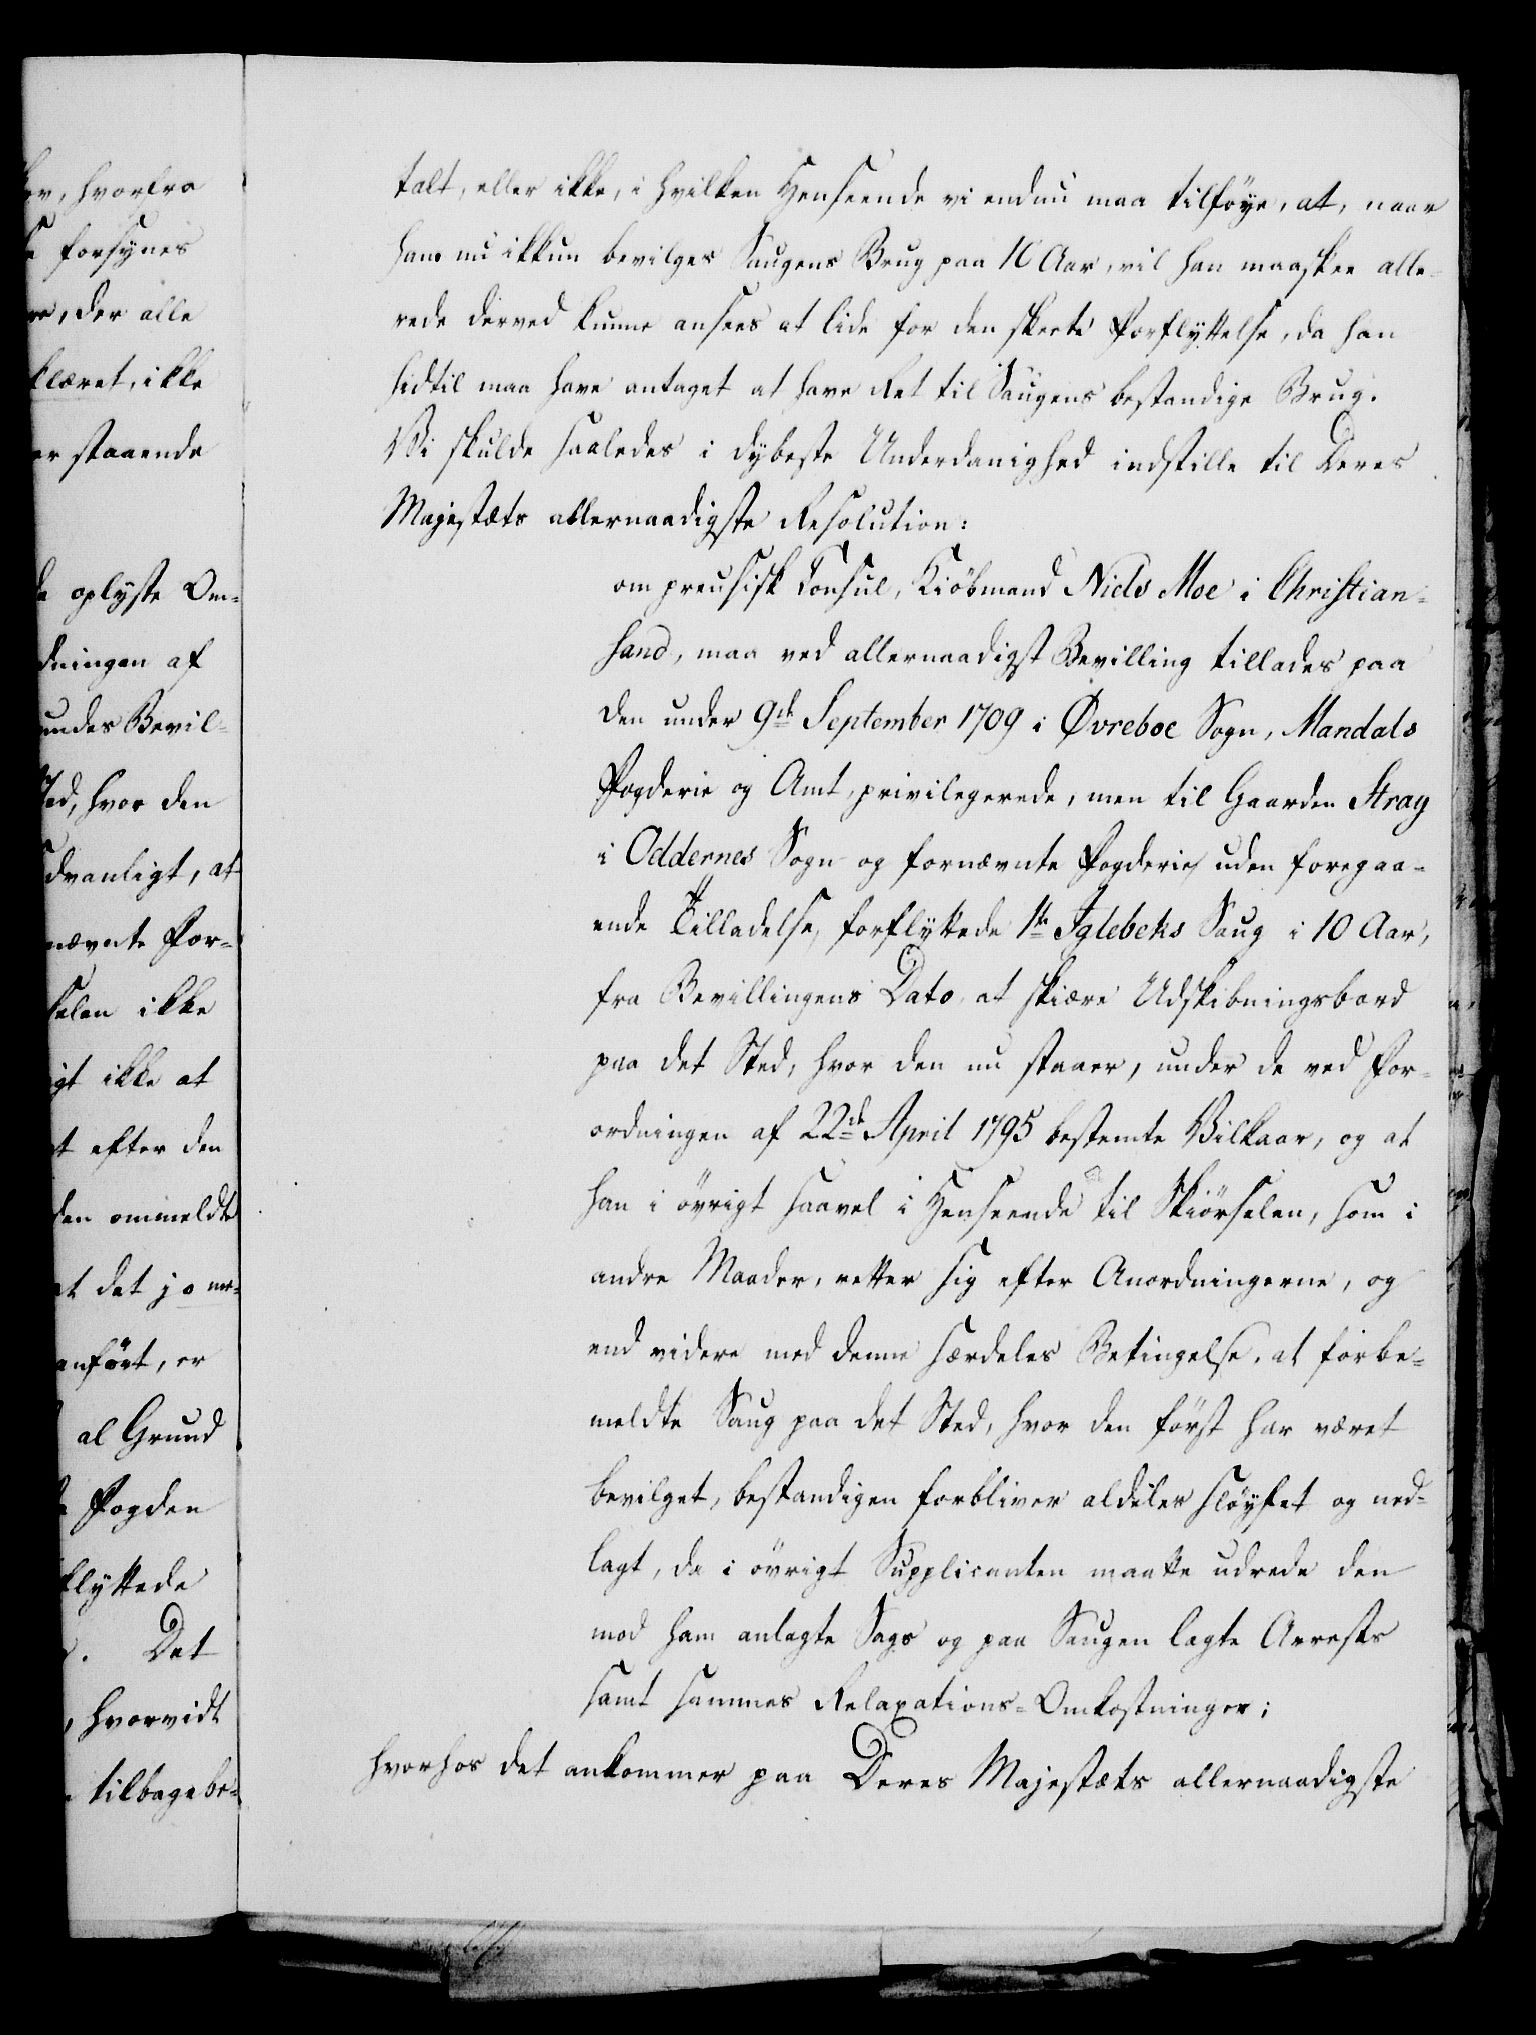 er, hvorfra
forsynes
re, der alle
klæret, ikke
er staaende
oplyste Om-
dningen af
undes Bevil-
ted, hvor den
ædvanligt, at
nævnte For-
selen ikke
igt ikke at
t efter den
den ommeldte
at det jo mer-
anført, er
al Grund
Fogden
flyttede
Det
, hvorvidt
tilbagebe-
talt, eller ikke, i hvilken Henseende vi endnu maa tilföye, at, naar
ham nu ikkun bevilges Saugens Brug paa 10 Aar, vil han maaskee alle-
rede derved kunne ansees at lide for den skeete Forflyttelse, da han
hidtil maa have antaget at have Ret til Saugens bestandige Brug.
Vi skulde saaledes i dybeste Underdanighed indstille til Deres
Majestæts allernaadigste Resolution:
om preusisk Consul, Kiöbmand Niels Moe i Christian-
sand, maa ved allernaadigst Bevilling tillades paa
den under 9de September 1709 i Øvreboe Sogn, Mandals
Fogderie og Amt, privilegerede, men til Gaarden Stray
i Oddernes Sogn og fornævnte Fogderie, uden foregaa-
ende Tilladelse, forflyttede 1ste Iglebeks Saug i 10 Aar,
fra Bevillingens Dato, at skiære Udskibningsbord
paa det Sted, hvor den nu staaer, under de ved For-
ordningen af 22de April 1795 bestemte Vilkaar, og at
han i övrigt saavel i Henseende til Skiörselen, som i
andre Maader, retter sig efter Anordningerne, og
end videre med denne særdeles Betingelse, at forbe-
meldte Saug paa det Sted, hvor den först har været
bevilget, bestandigen forbliver aldeles slöyfet og ned-
lagt, da i övrigt Supplicanten maatte udrede den
mod ham anlagte Sags og paa Saugen lagte Arrests
samt sammes Relaxations-Omkostninger;
hvorhos det ankommer paa Deres Majestæts allernaadigste